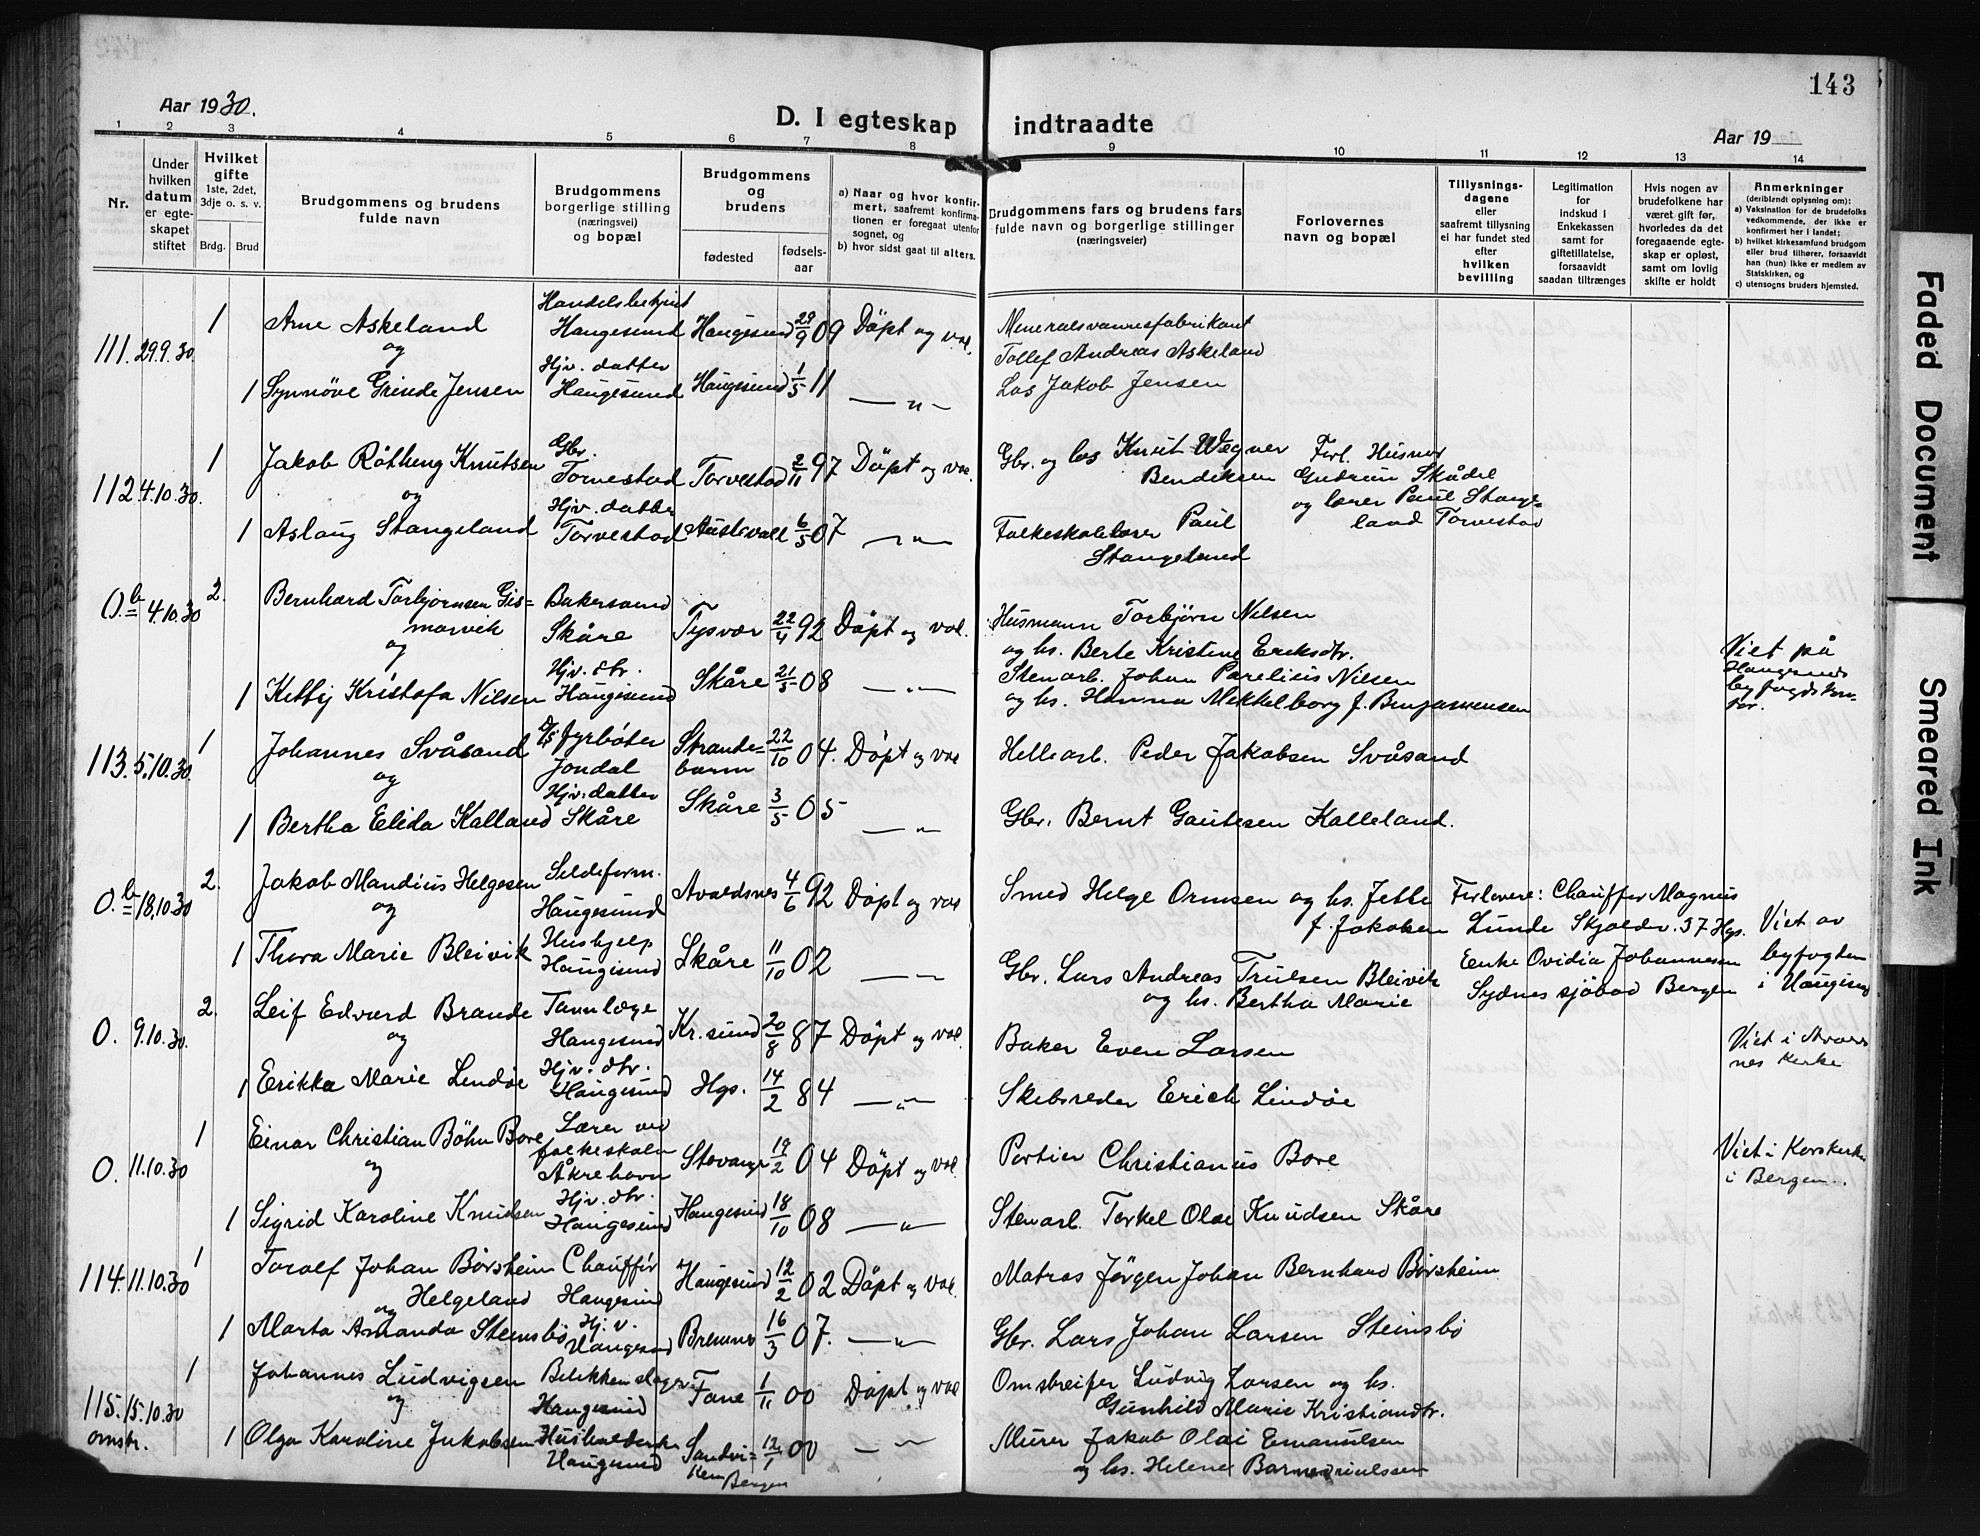 143
Aar 1930.
D. I egteskap indtraadte
Aar 19
1 2 3 4 5 6 7 8 9 10 11 12 13 14
Nr.
Under hvilken datum er egteskapet stiftet
Hvilket gifte 1ste, 2det, 3dje o. s. v.
Brdg. Brud
Brudgommens og brudens fulde navn
Brudgommens borgerlige stilling (næringsvei) og bopæl
Brudgommens og brudens
fødested fødselsaar
a) Naar og hvor konfirmert, saafremt konfirmationen er foregaat utenfor sognet, og
b) hvor sidst gaat til alters.
Brudgommens fars og brudens fars fulde navn og borgerlige stillinger (næringsveier)
Forlovernes navn og bopæl
Tillysningsdagene eller saafremt tillysning ei har fundet sted efter hvilken bevilling
Legitimation for Indskud i Enkekassen samt for giftetillatelse, forsaavidt saadan tiltrænges
Hvis nogen av brudefolkene har været gift før, hvorledes da det foregaaende egteskap er opløst, samt om lovlig skifte er holdt
Anmerkninger (deriblendt oplysning om):
a) Vaksination for de brudefolks vedkommende, der ikke er konfirmert her i landet;
b) hvilket kirkesamfund brudgom eller brud tilhører, forsaavidt han (hun) ikke er medlem av Statskirken, og
c) utensogns bruders hjemsted.
111. 29.9.30. 1 Arne Askeland Handelsbetjent Haugesund Haugesund 29/9 09 Döpt og vac. Mineralvannsfabrikant Tollef Andreas Askeland
og
1 Synnöve Grinde Jensen Hjv. datter Haugesund Haugesund 1/5 11 — „ — Los Jakob Jensen
112. 4.10.30. 1 Jakob Röthing Knutsen Gbr. Torvestad Torvestad 2/11 97 Döpt og vac. Gbr. og los Knut Wegner Bendiksen Forl. Husmor Gudrun Skådel og lærer Paul Stangeland Torvestad
og
1 Aslaug Stangeland Hjv. datter Torvestad Austevoll 6/5 07 — „ — Folkeskolelærer Paul Stangeland
0.b 4.10.30 2. Bernhard Torbjørnsen Gismarvik Bakersvend Skåre Tysvær 22/4 92 Döpt og vac. Husmann Torbjörn Nilsen og hs. Berte Kristine Eriksdtr. Viet på Haugesunds byfogdkontor.
og
1 Kitty Kristofa Nilsen Hjv. dtr. Haugesund Skåre 21/5 08 — „ — Stenarb. Johan Parelius Nilsen og hs. Hanna Mekkelborg f. Benjaminsen
113. 5.10.30. 1 Johannes Svåsand D/S fyrböter Jondal Strandebarm 22/10 04. Döpt og vac Hellearb. Peder Jakobsen Svåsand
og
1 Bertha Elida Kalland Hjv. datter Skåre Skåre 3/5 05 — „ — Gbr. Bernt Gautesen Kalleland.
0.b 18.10.30 2. Jakob Mandius Helgesen Sildeform. Haugesund Avaldsnes 4/6 92 Döpt og vac Smed Helge Ormsen og hs. Jette f. Jakobsen Forlovere: Chauffør Magnus Lunde Skjoldv. 37 Hgs. Viet av byfogden i Haugesund
og
1 Thora Marie Bleivik Hushjelp Haugesund Skåre 11/10 02 — „ — Gbr. Lars Andreas Trulsen Bleivik og hs. Bertha Marie Enke Ovidia Johannesen Sydnes sjöbad Bergen
0. 9.10.30. 2. Leif Edvard Brande Tannlæge Haugesund Kr.sund 20/8 87 Döpt og vac. Baker Even Larsen Viet i Avaldsnes kirke
og
1 Erikka Marie Lindöe Hjv. dtr. Haugesund Hgs. 14/2 84 — „ — Skibsreder Erich Lindöe
0. 11.10.30 1 Einar Christian Böhn Bore Lærer ved folkeskolen Åkrehavn Stavanger 19/2 04 Döpt og vac. Portier Christianus Bore Viet i Korskirken i Bergen.
og
1 Sigrid Karoline Knudsen Hjv. dtr. Haugesund Haugesund 18/10 08 — „ — Stenarb. Torkel Olai Knudsen Skåre
114. 11.10.30 1 Toralf Johan Börsheim Helgeland Chauffør Haugesund Haugesund 12/2 02 Döpt og vac. Matros Jörgen Johan Bernhard Börsheim
og
1 Marta Amanda Steinsbö Hj. v. Haugesund Bremnes 16/3 07. — „ — Gbr. Lars Johan Larsen Steinsbö
115. 15.10.30 omstr. 1 Johannes Ludvigsen Blikkenslager Haugesund Fane 1/11 00 Döpt og vac Omstreifer Ludvig Larsen og hs. Gunhild Marie Kristiandtr.
og
1 Olga Karoline Jakobsen Husholderske Haugesund Sandviken Bergen 12/1 00 — „ — Murer Jakob Olai Emanulsen og hs. Helene
Faded Document
Smeared Ink